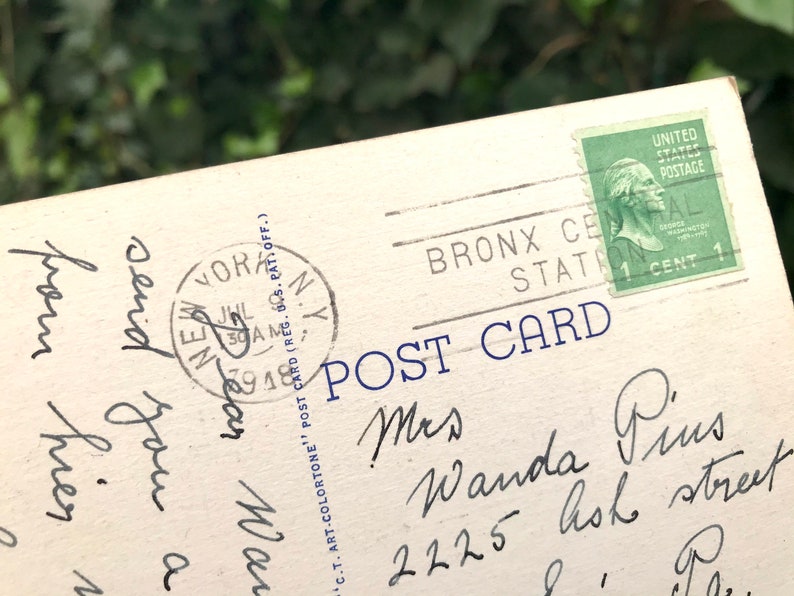 UNITED
STATES
POSTAGE
GEORGE
WASHINGTON
1789-1797
1 CENT 1
BRONX CENTRAL
STATION
NEW YORK, N.Y.
JUL
30 AM
1948
POST CARD
"C.T. ART-COLORTONE" POST CARD (REG. U.S. PAT. OFF.)
Mrs
Wanda Pius
2225 Ash street
Dear Wan
send you a
from hier